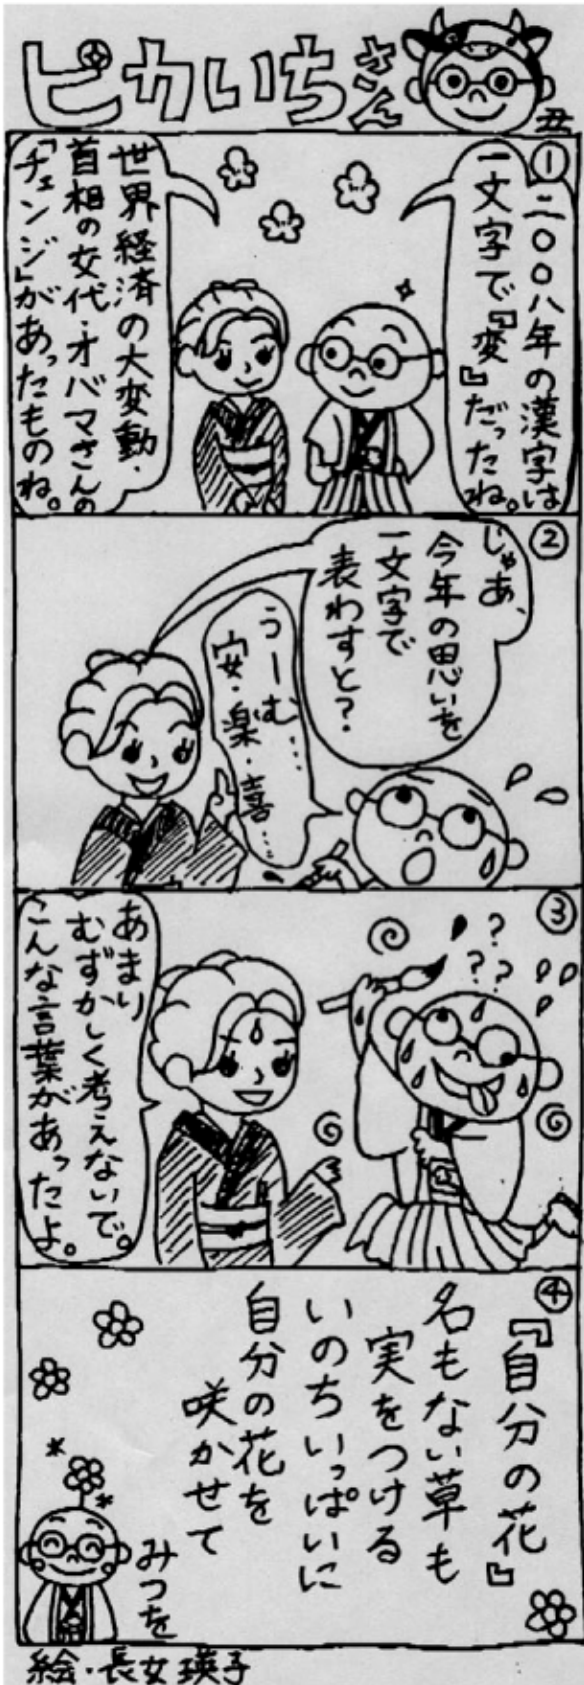 ピカいちさん
丑
①
二〇〇八年の漢字は
一文字で『変』だったね。
世界経済の大変動・
首相の交代・オバマさんの
「チェンジ」があったものね。
②
じゃあ、
今年の思いを
一文字で
表わすと?
うーむ…
安・楽・喜……
③
?
??
あまり
むずかしく考えないで。
こんな言葉があったよ。
④
『自分の花』
名もない草も
実をつける
いのちいっぱいに
自分の花を
咲かせて
みつを
絵・長女瑛子